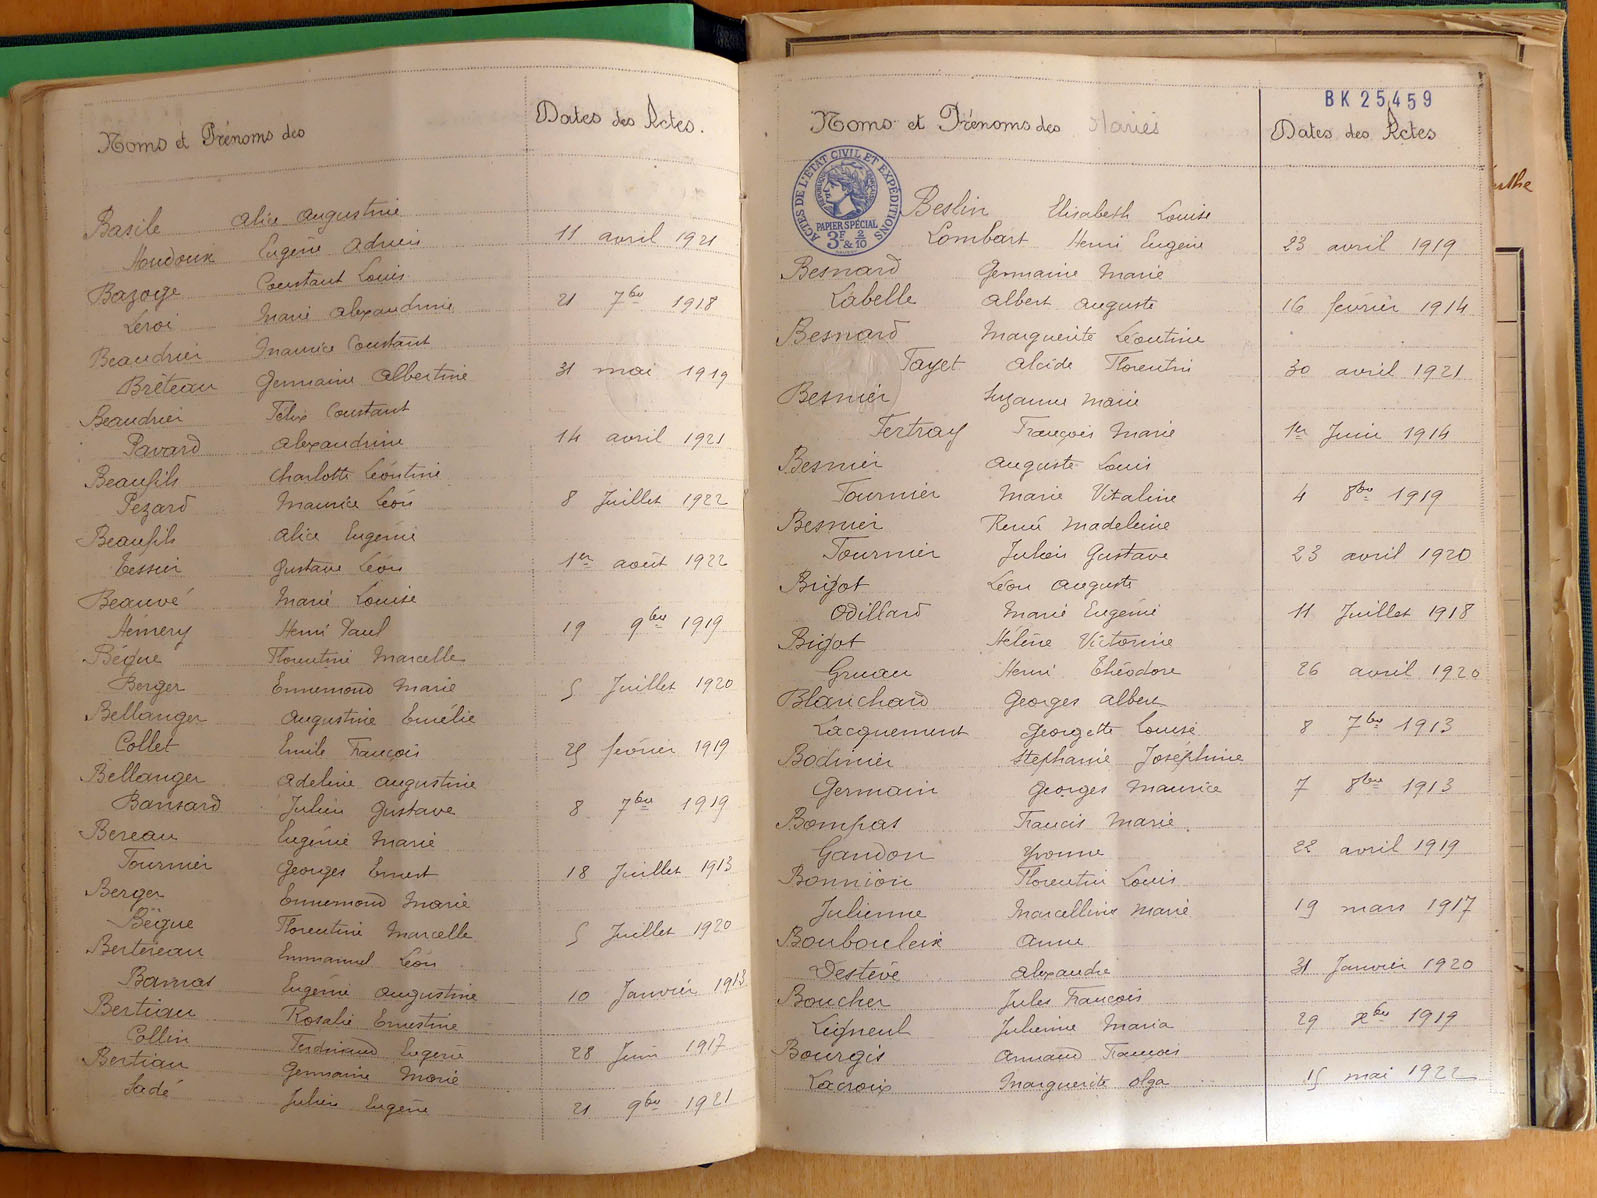 Noms et Prénoms des
Dates des Actes.
Basile Alice Augustine
Houdoux Eugène Adrien 11 avril 1921
Bazoge Constant Louis
Leroi Marie Alexandrine 21 7bre 1918
Beaudrier Maurice Constant
Breteau Germaine Albertine 31 mai 1919
Beaudrier Félix Constant
Pavard Alexandrine 14 avril 1921
Beaufils Charlotte Léontine
Pezard Maurice Léon 8 Juillet 1922
Beaufils Alice Eugénie
Tessier Gustave Léon 1er août 1922
Beauvé Marie Louise
Hémery Henri Paul 19 9bre 1919
Bégue Florentine Marcelle
Berger Ennemond Marie 5 Juillet 1920
Bellanger Augustine Emélie
Collet Emile François 25 février 1919
Bellanger Adeline Augustine
Bansard Julien Gustave 8 7bre 1919
Bereau Eugénie Marie
Fournier Georges Ernest 18 Juillet 1913
Berger Ennemond Marie
Bégue Florentine Marcelle 5 Juillet 1920
Bertereau Emmanuel Léon
Eugénie Augustine 10 Janvier 1913
Bertiau Rosalie Ernestine
Collin Ferdinand Eugène 28 Juin 1917
Bertiau Germaine Marie
Sadé Julien Eugène 21 9bre 1921
BK 25459
Noms et Prénoms des Mariés
Dates des Actes
ACTES DE L'ETAT CIVIL ET EXPÉDITIONS
PAPIER SPÉCIAL
3F & 2/10
Beslin Elisabeth Louise
Lombart Henri Eugène 23 avril 1919
Besnard Germaine Marie
Labelle Albert Auguste 16 février 1914
Besnard Marguerite Léontine
Tayet Alcide Florentin 30 avril 1921
Besnier Suzanne Marie
Fertray François Marie 1er Juin 1914
Besnier Auguste Louis
Tournier Marie Vitaline 4 8bre 1919
Besnier René Madeleine
Fournier Julien Gustave 23 avril 1920
Bigot Léon Auguste
Odillard Marie Eugénie 11 Juillet 1918
Bigot Hélène Victorine
Gruau Henri Théodore 26 avril 1920
Blanchard Georges Albert
Lacquement Georgette Louise 8 7bre 1913
Bodinier Stephanie Joséphine
Germain Georges Maurice 7 8bre 1913
Bompas Francis Marie
Gandon Yvonne 22 avril 1919
Bonnion Florentin Louis
Julienne Marcelline Marie 19 mars 1917
Boubouleix Anne
Destève Alexandre 31 Janvier 1920
Boucher Jules François
Ligneul Julienne Maria 29 xbre 1919
Bourgis Armand François
Lacroix Marguerite Olga 15 mai 1922